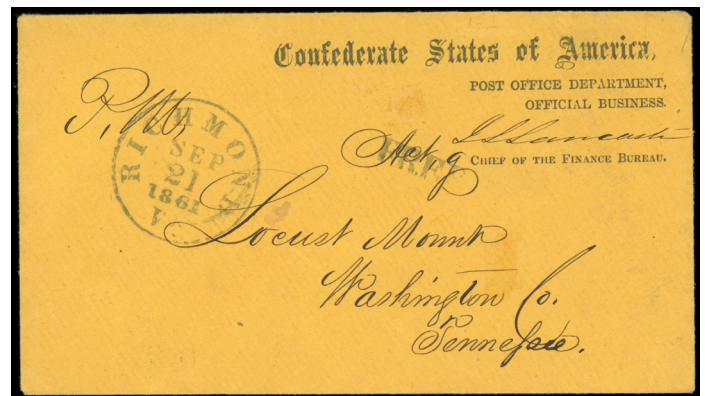 Confederate States of America,
POST OFFICE DEPARTMENT,
OFFICIAL BUSINESS.
Actg
CHIEF OF THE FINANCE BUREAU.
P.M.
RICHMOND Va.
SEP
21
1861
FREE
Locust Mount
Washington Co.
Tennessee.